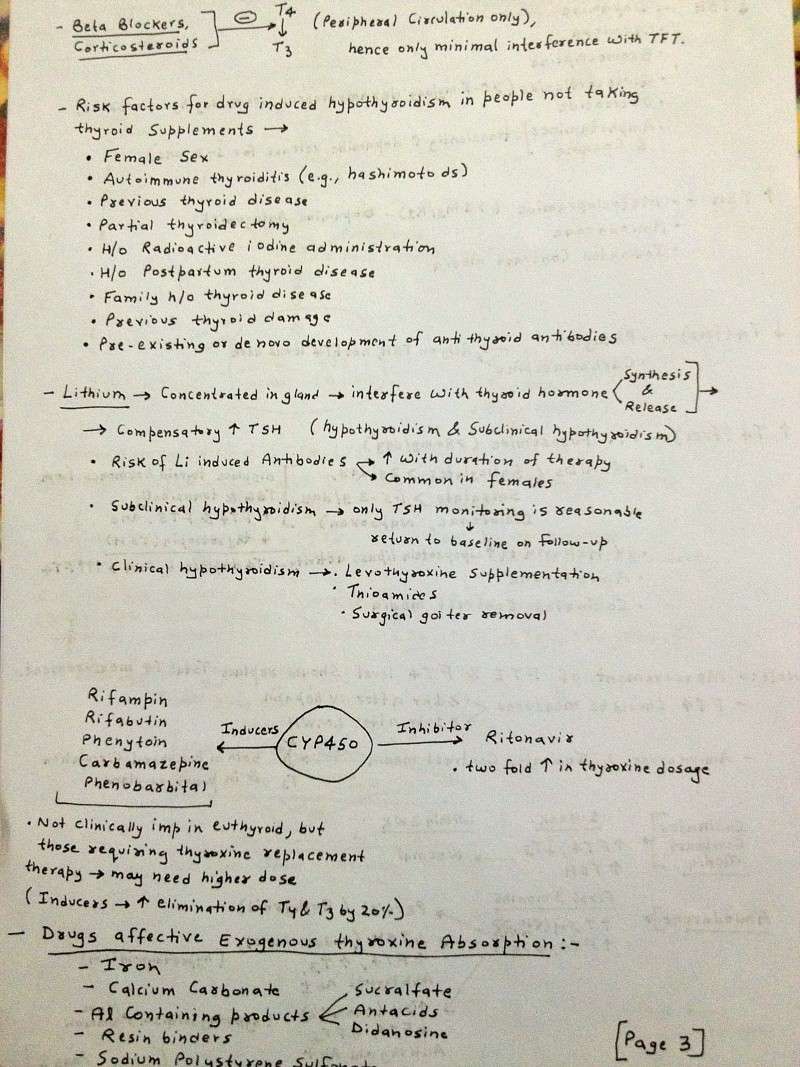 - Beta Blockers, Corticosteroids ⊖→ T4 ↓ T3 (Peripheral Circulation only),
hence only minimal interference with TFT.
- Risk factors for drug induced hypothyroidism in people not taking
thyroid Supplements →
• Female Sex
• Autoimmune thyroiditis (e.g., hashimoto ds)
• Previous thyroid disease
• Partial thyroidectomy
• H/o Radioactive iodine administration
• H/o Postpartum thyroid disease
• Family h/o thyroid disease
• Previous thyroid damage
• Pre-existing or de novo development of anti thyroid antibodies
- Lithium → Concentrated in gland → interfere with thyroid hormone < Synthesis & Release ] →
→ Compensatory ↑ TSH (hypothyroidism & Subclinical hypothyroidism)
• Risk of Li induced Antibodies → ↑ with duration of therapy
→ Common in females
• Subclinical hypothyroidism → only TSH monitoring is reasonable
↓
return to baseline on follow-up
• Clinical hypothyroidism → • Levothyroxine Supplementation
• Thioamides
• Surgical goiter removal
Rifampin
Rifabutin
Phenytoin
Carbamazepine
Phenobarbital
Inducers
CYP450
Inhibitor
Ritonavir
• two fold ↑ in thyroxine dosage
• Not clinically imp in euthyroid, but
those requiring thyroxine replacement
therapy → may need higher dose
(Inducers → ↑ elimination of T4 & T3 by 20%)
- Drugs affective Exogenous thyroxine Absorption :-
- Iron
- Calcium Carbonate
- Al Containing products < Sucralfate
Antacids
Didanosine
- Resin binders
- Sodium Polystyrene Sulfonate
[Page 3]